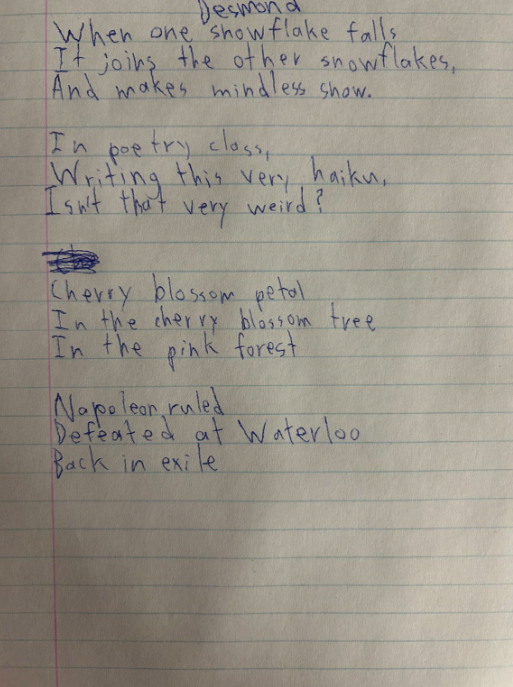 Desmond
When one snowflake falls
It joins the other snowflakes,
And makes mindless show.
In poetry class,
Writing this very haiku,
Isn't that very weird?
Cherry blossom petal
In the cherry blossom tree
In the pink forest
Napoleon ruled
Defeated at Waterloo
Back in exile